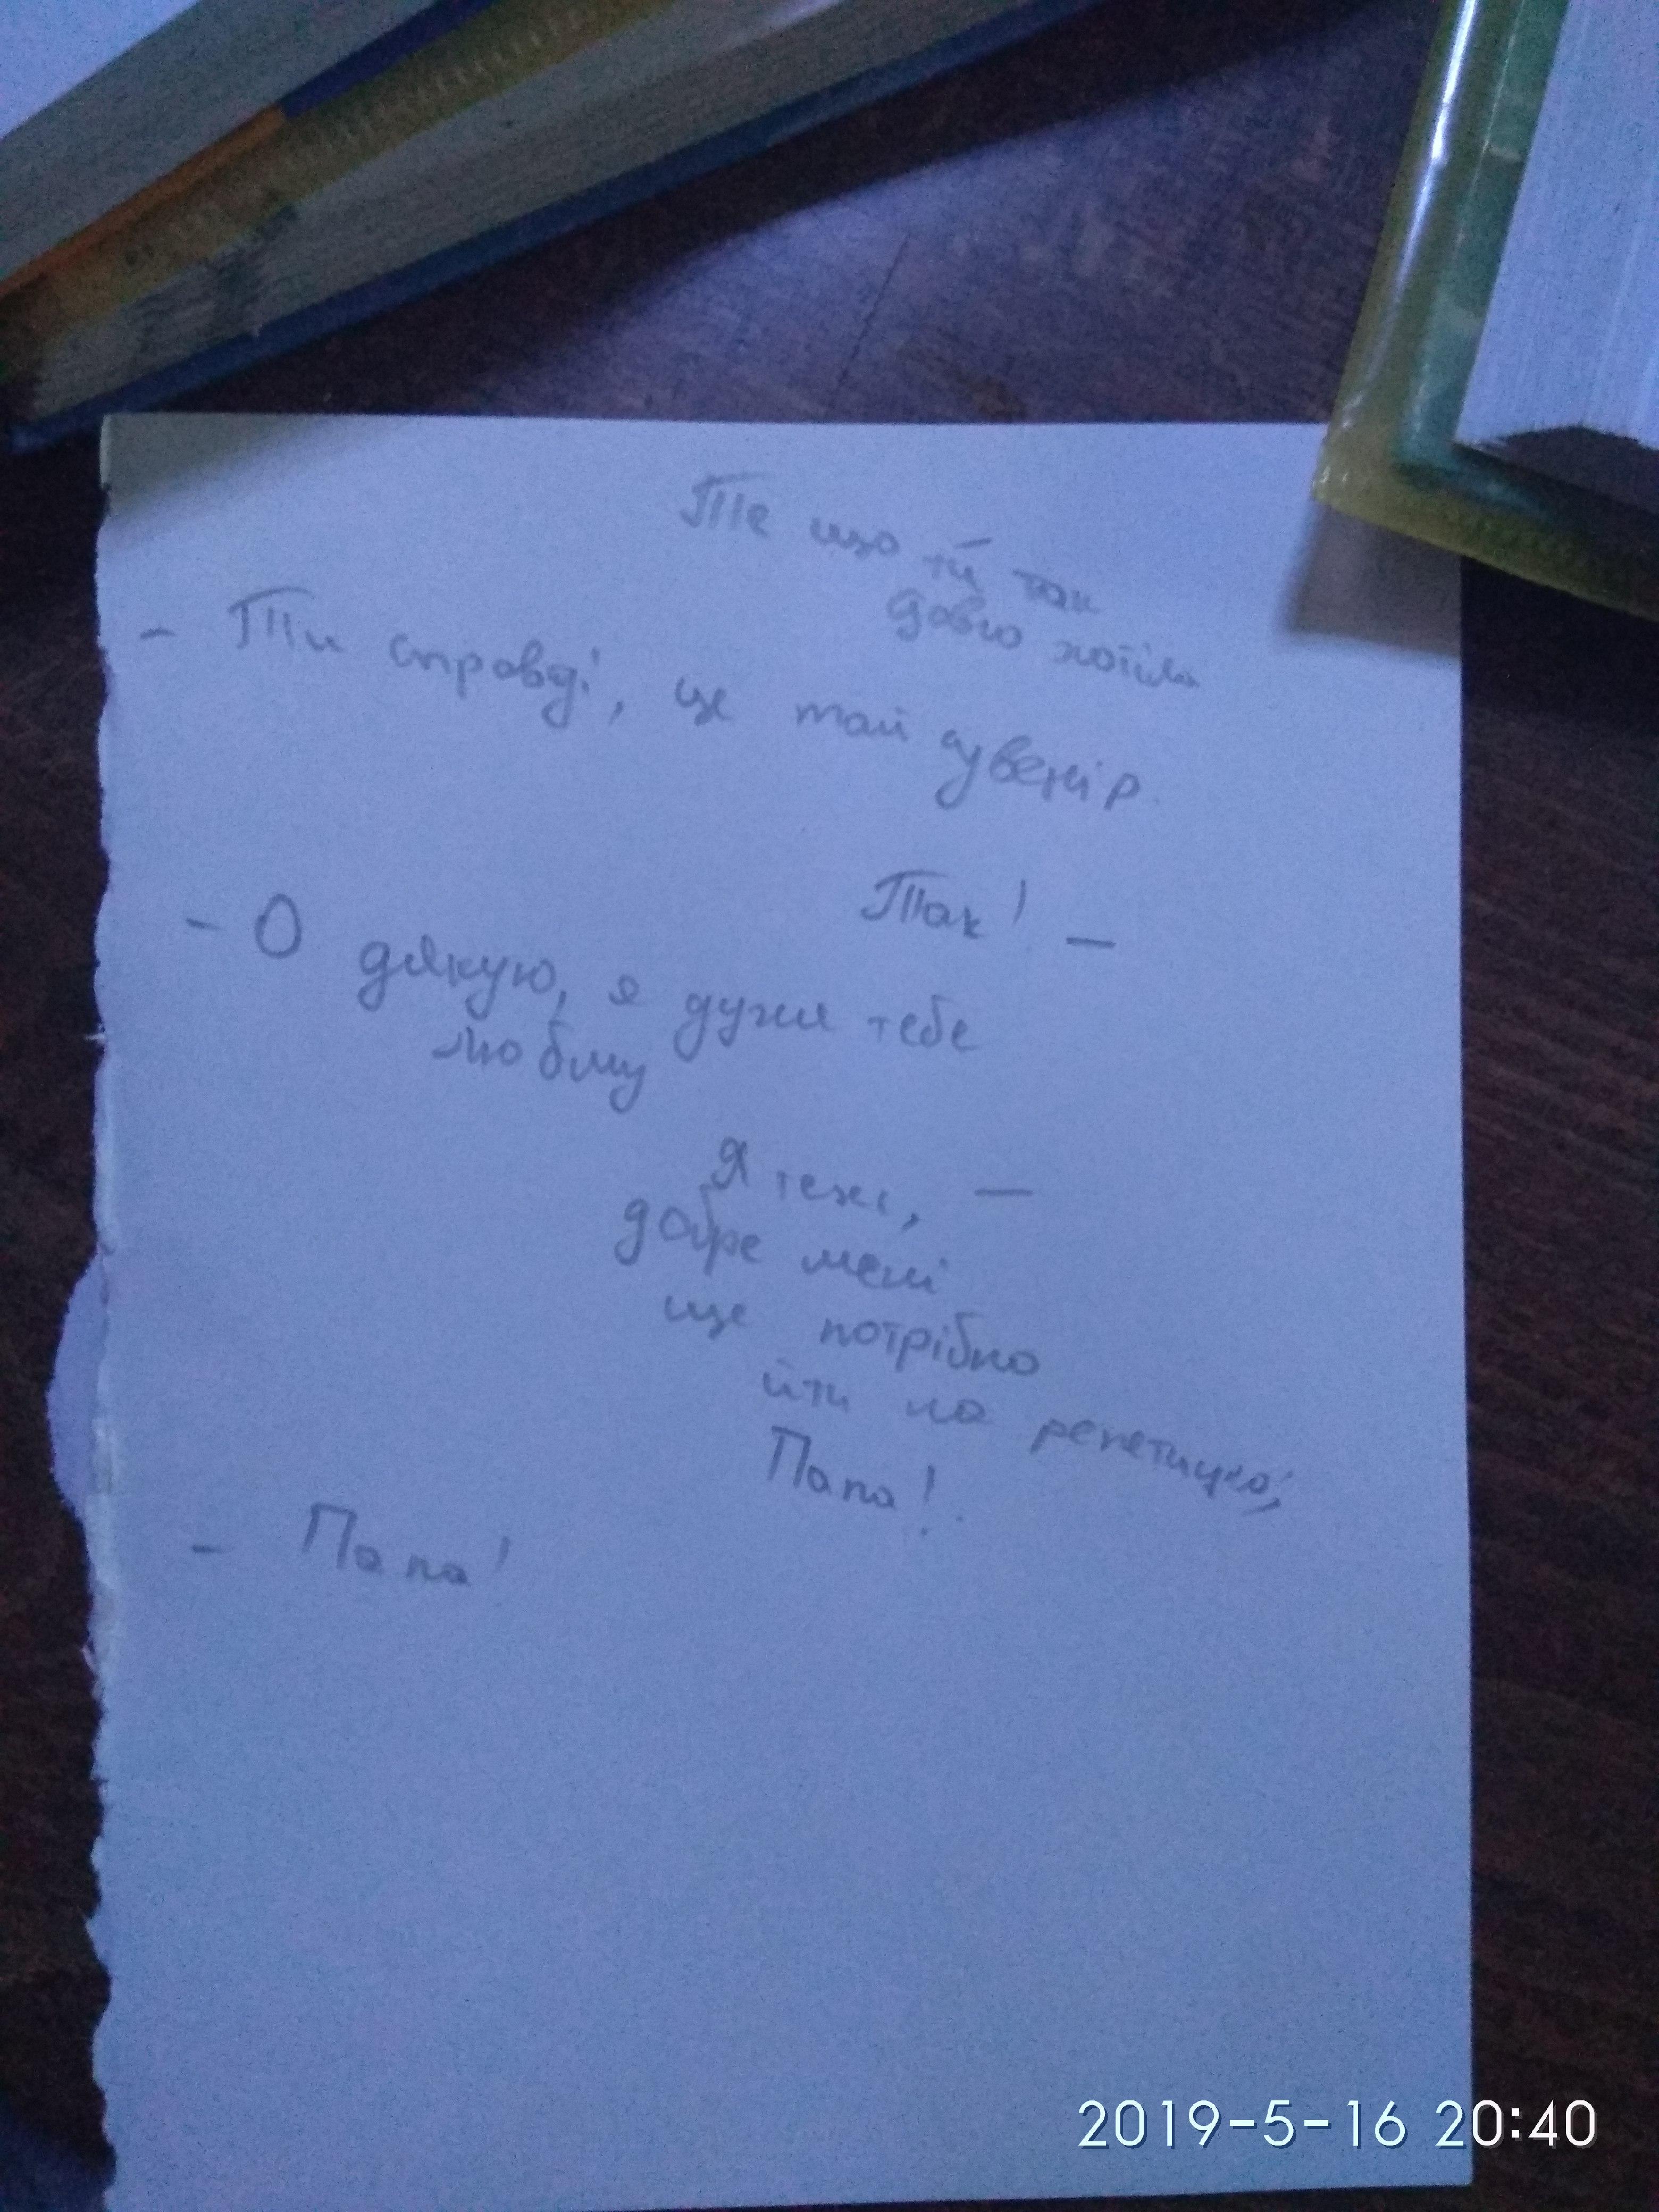 Те що ти так —
довго хотіла
– Ти справді, це той сувенір.
Так! —
– О дякую, я дуже тебе
люблу
Я теж, —
добре мені
ще потрібно
йти на репетицію,
Папа!
– Папа!
2019-5-16 20:40